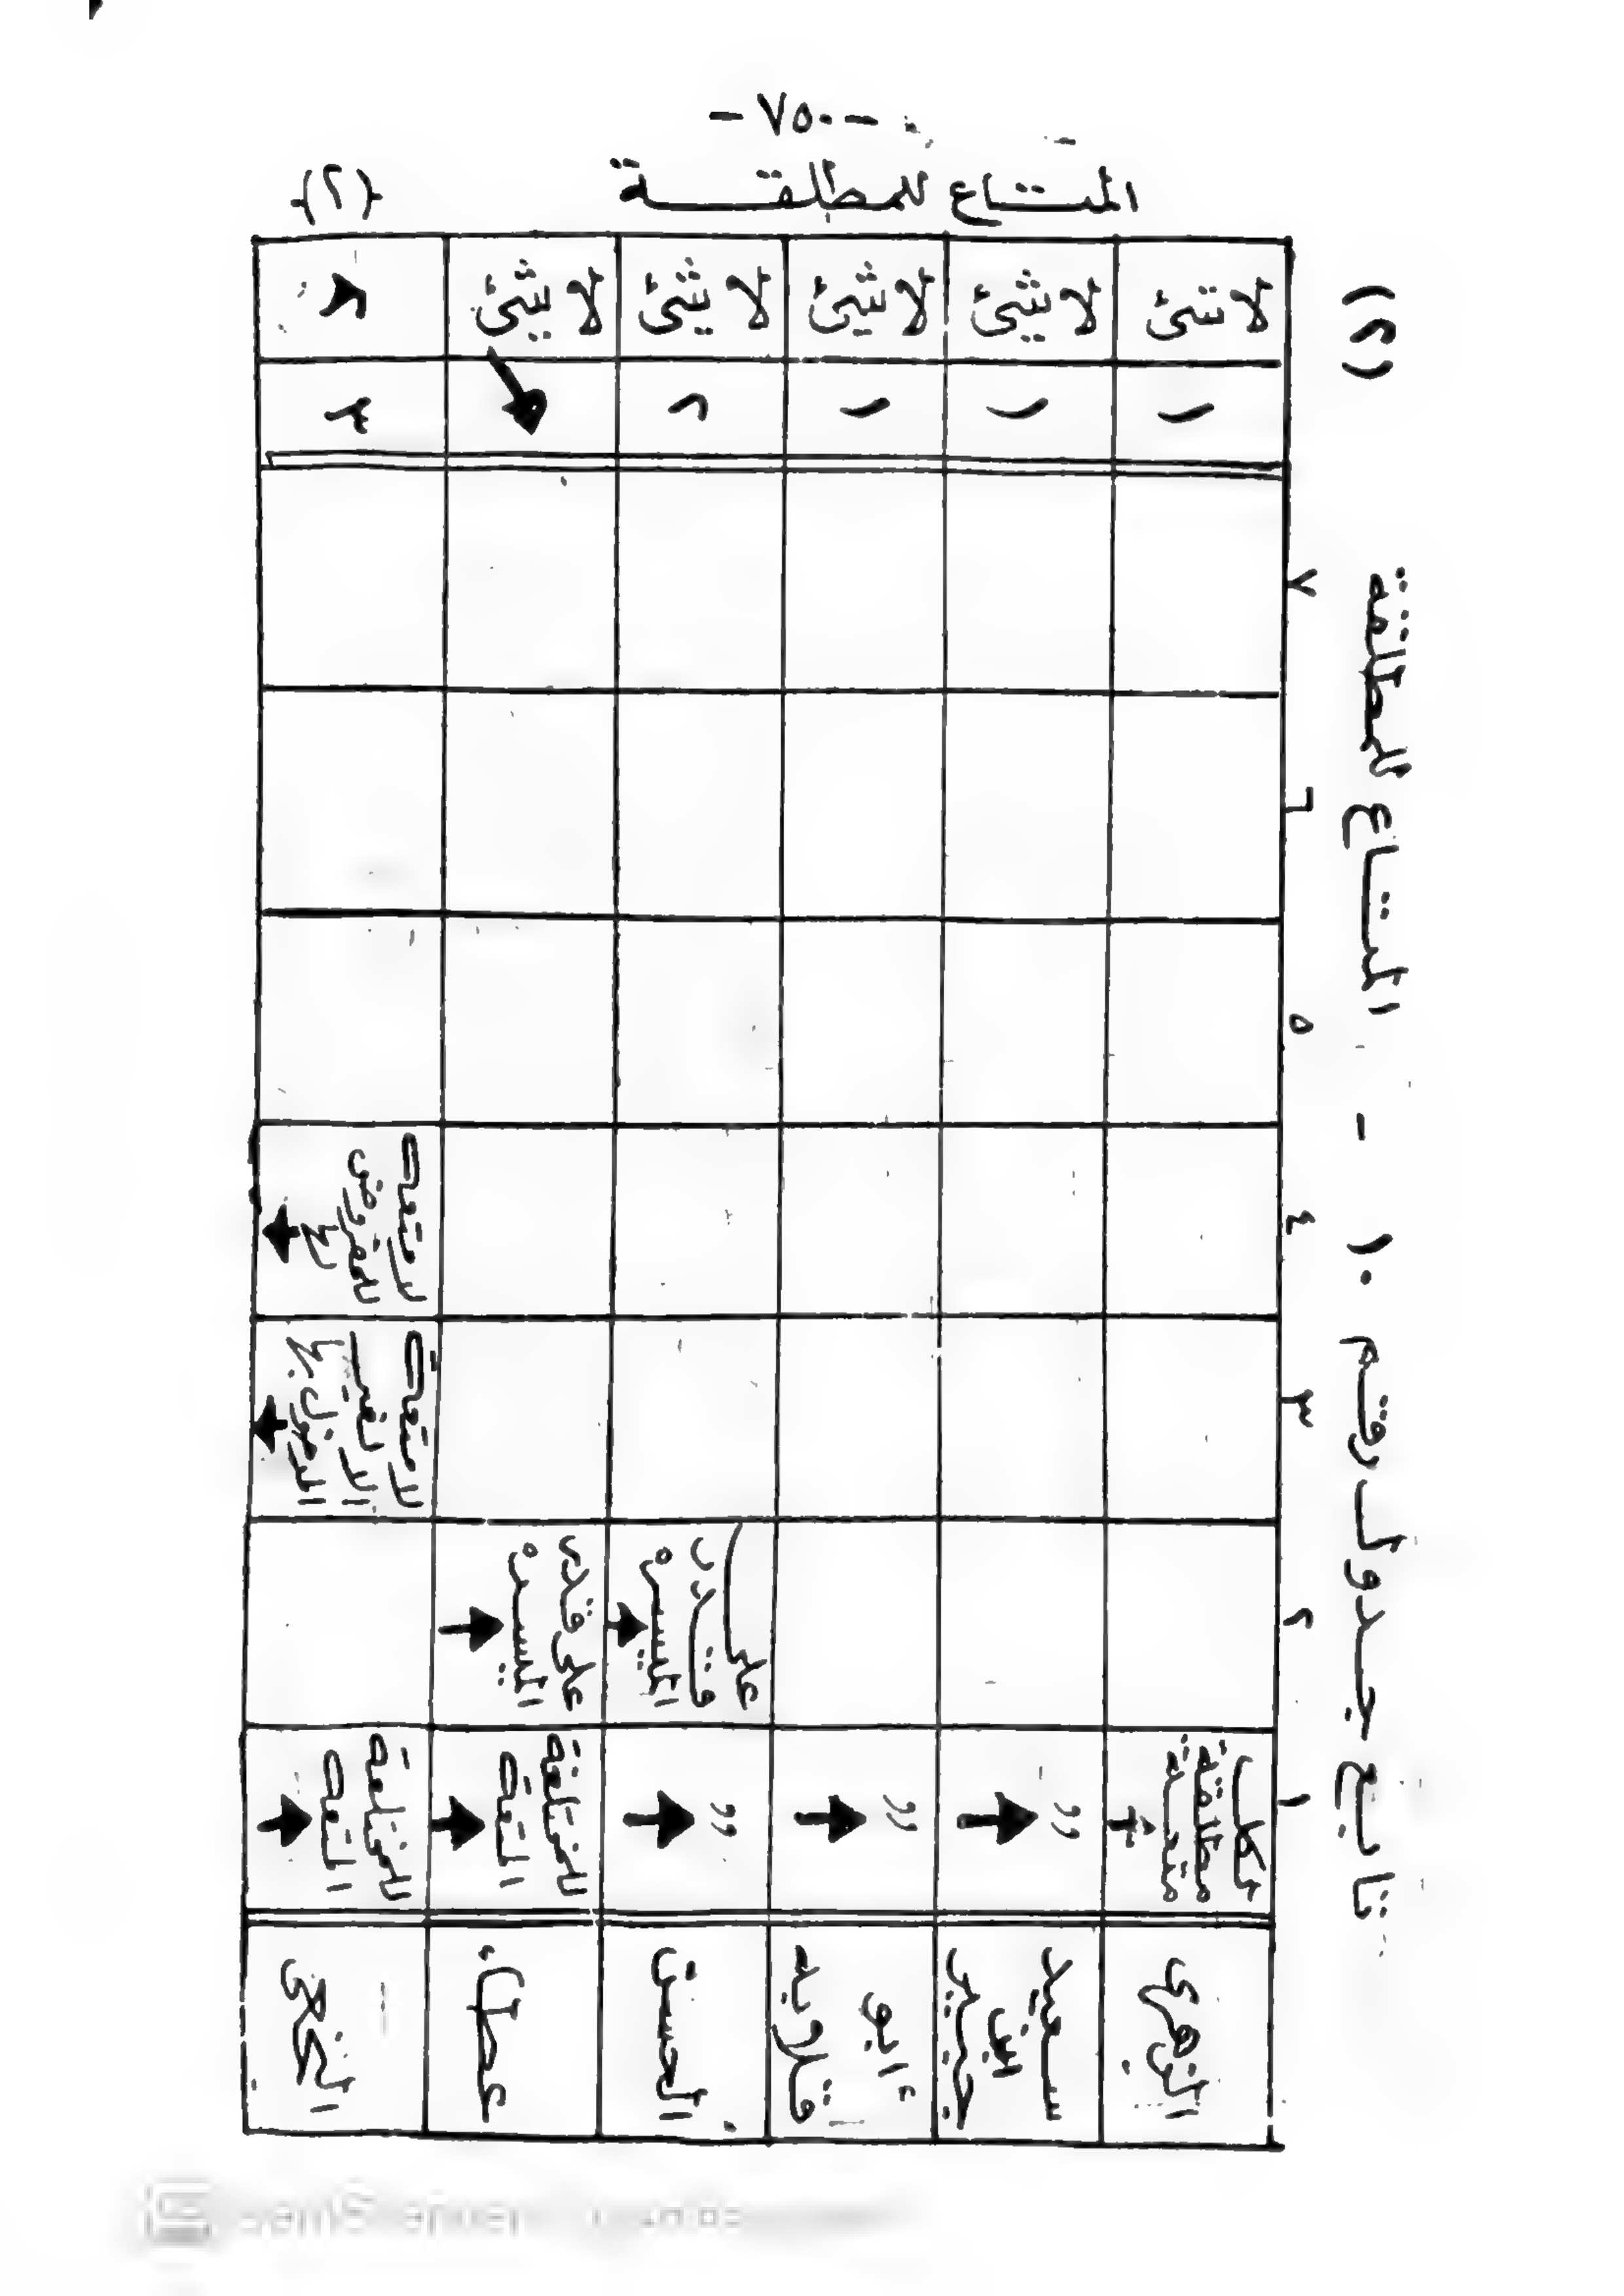 - ٧٥٠ -
المتاع للمطلقة
(٢)
تابع جدول رقم ١٠ - المتاع للمطلقة (٢)
١ ٢ ٣ ٤ ٥ ٦ ٧
الزهري
لكل
مطلقة
متعة
١
لا شئ
سعيد
ابن
جبير
,,
١
لا شئ
أبو
قلابه
,,
١
لا شئ
الحسن
,,
على
قدر
الميسره
٢
لا شئ
عطاء
للمختلعة
المتعة
على قدر
الميسره
لا شئ
النخعي
للمختلعة
المتعة
لا متعة
للمفروض
٣
٢